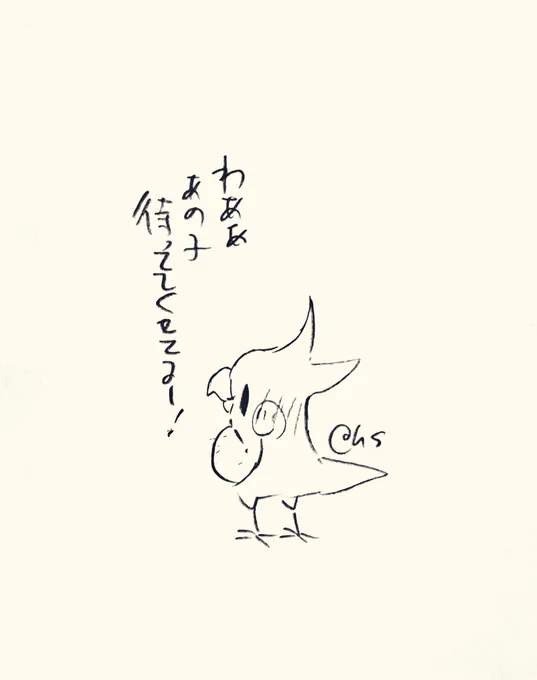 わあぁ
あの子
待っててくせてるー!
@hs